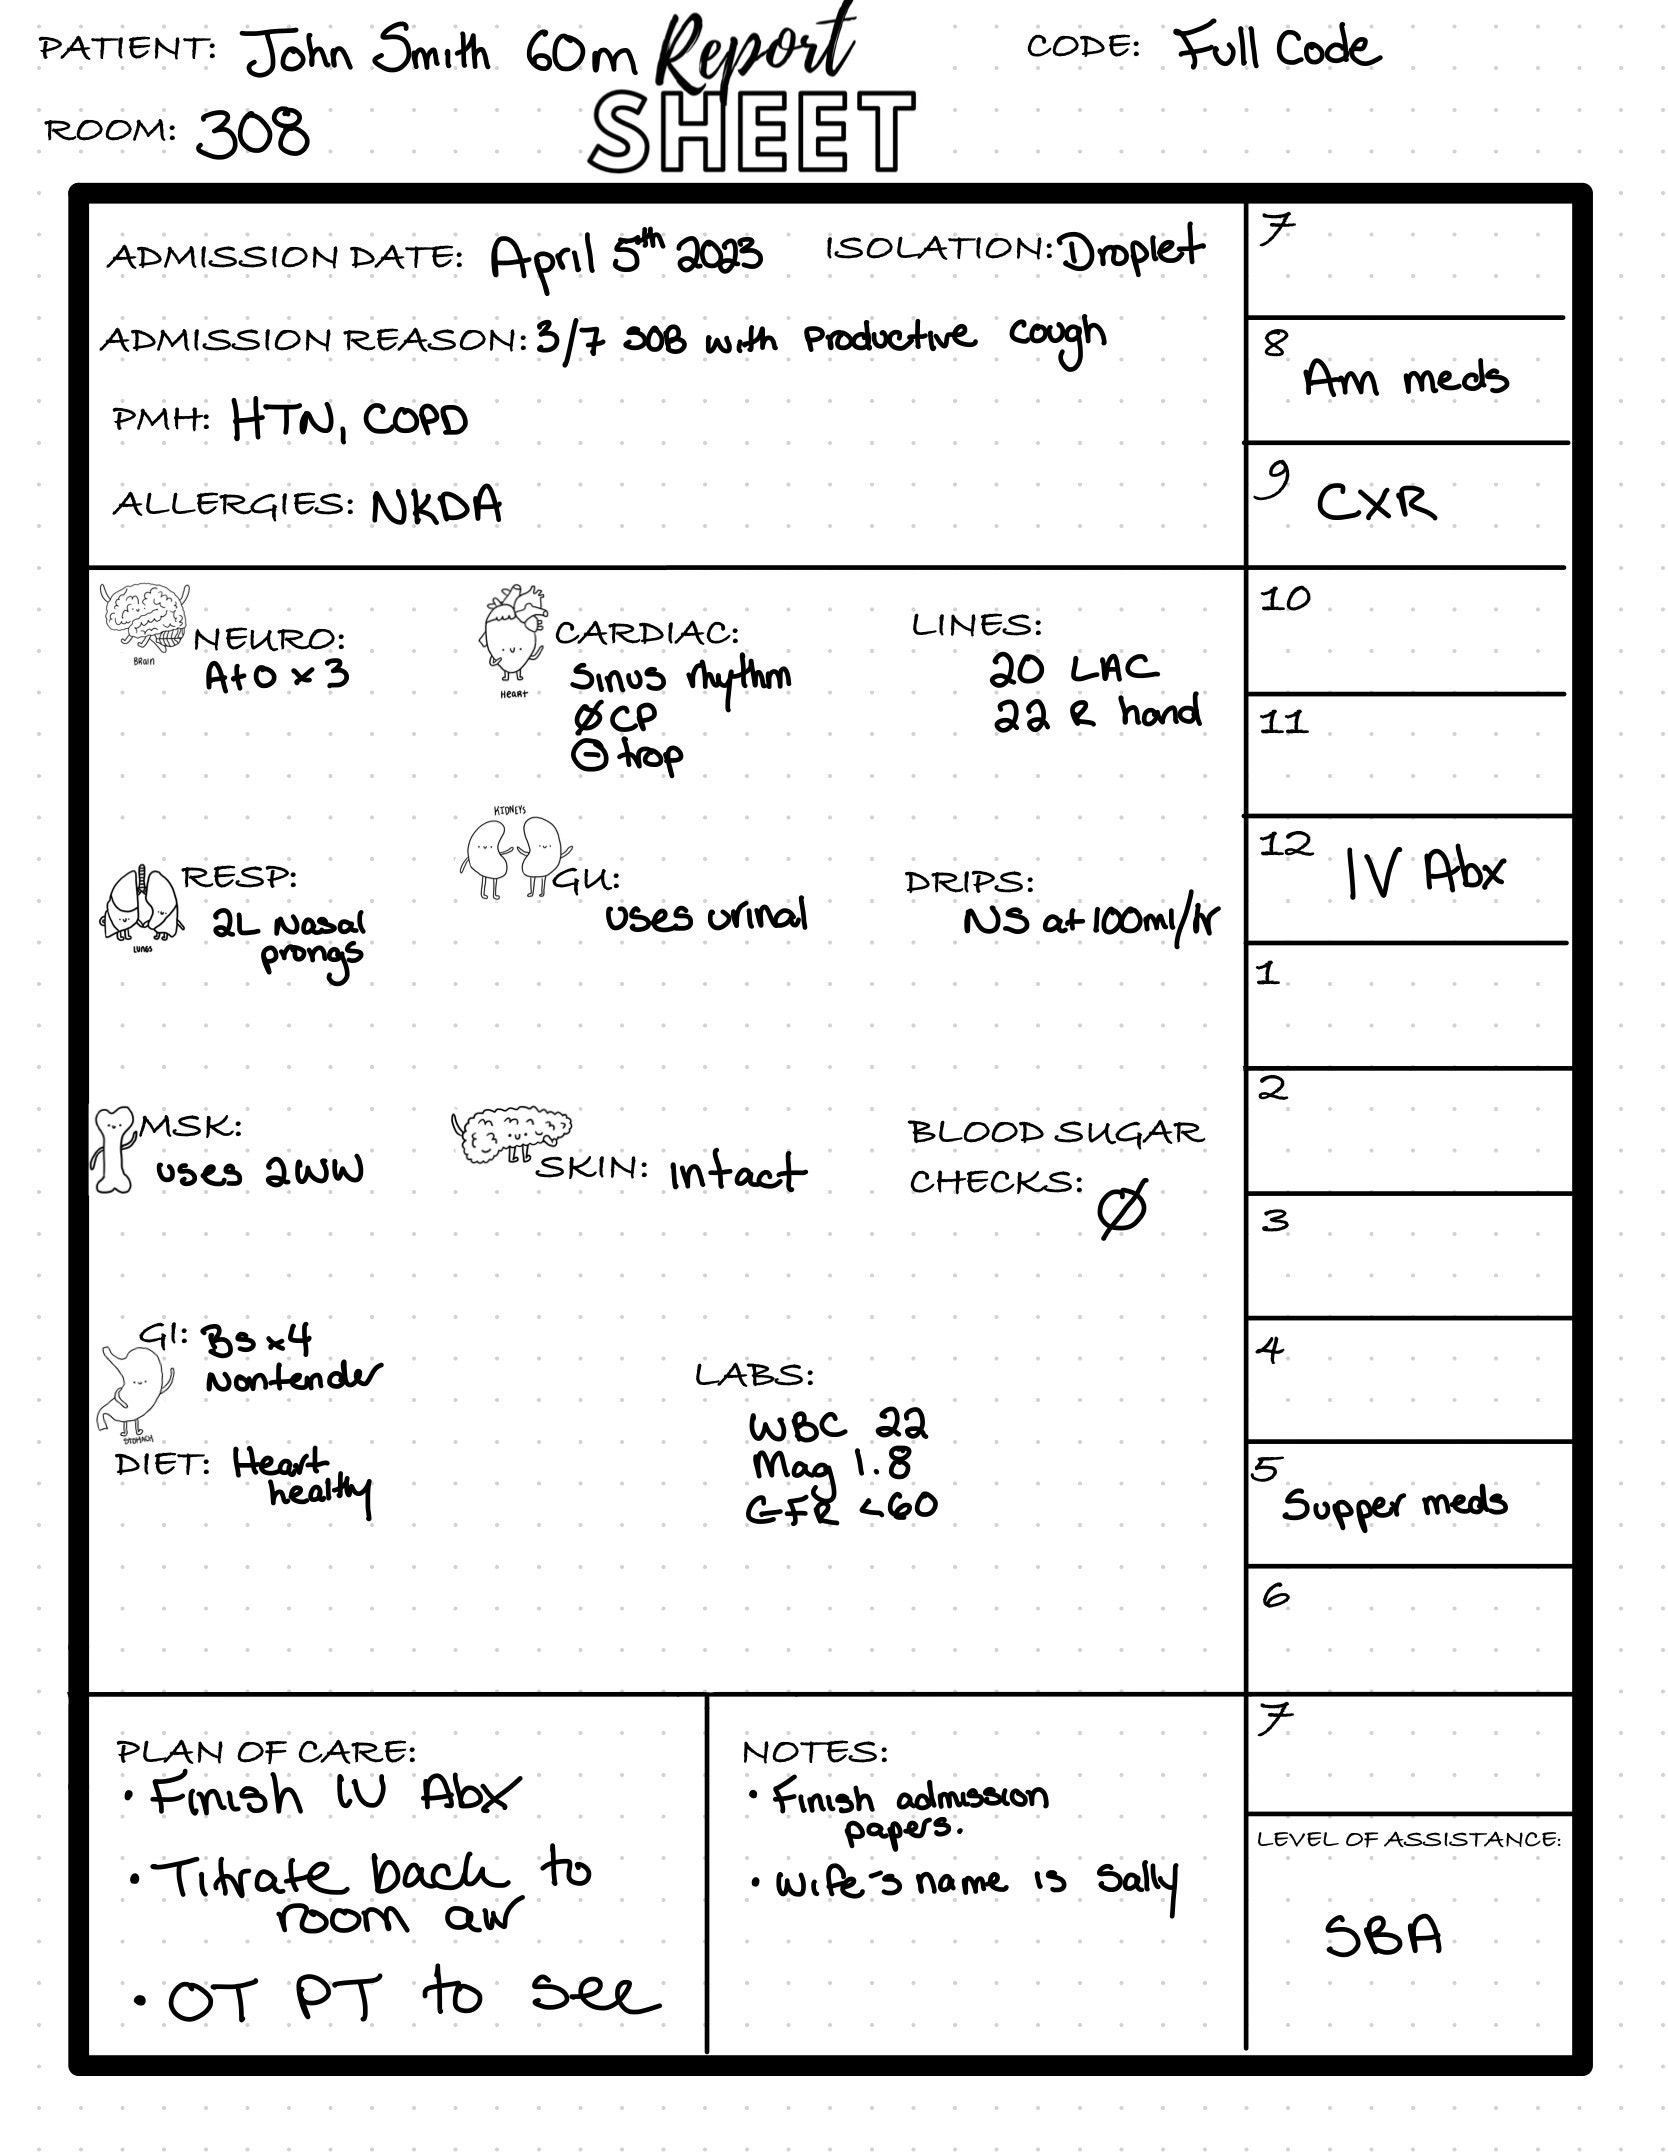 PATIENT: John Smith 60m
Report
SHEET
CODE: Full Code
ROOM: 308
ADMISSION DATE: April 5th 2023 ISOLATION: Droplet
ADMISSION REASON: 3/7 SOB with Productive Cough
PMH: HTN, COPD
ALLERGIES: NKDA
BRain
NEURO:
A+O x 3
HEART
CARDIAC:
Sinus rhythm
∅ CP
⊖ trop
LINES:
20 LAC
22 R hand
LUNGS
RESP:
2L Nasal
prongs
KIDNEYS
GU:
uses urinal
DRIPS:
NS at 100ml/hr
MSK:
uses 2WW
SKIN: Intact
BLOOD SUGAR
CHECKS: ∅
GI: BS x4
Nontender
STOMACH
DIET: Heart
healthy
LABS:
WBC 22
Mag 1.8
GFR <60
7
8
Am meds
9
CXR
10
11
12
IV Abx
1
2
3
4
5
Supper meds
6
7
LEVEL OF ASSISTANCE:
SBA
PLAN OF CARE:
• Finish IV Abx
• Titrate back to
room air
• OT PT to see
NOTES:
• Finish admission
papers.
• Wife's name is Sally